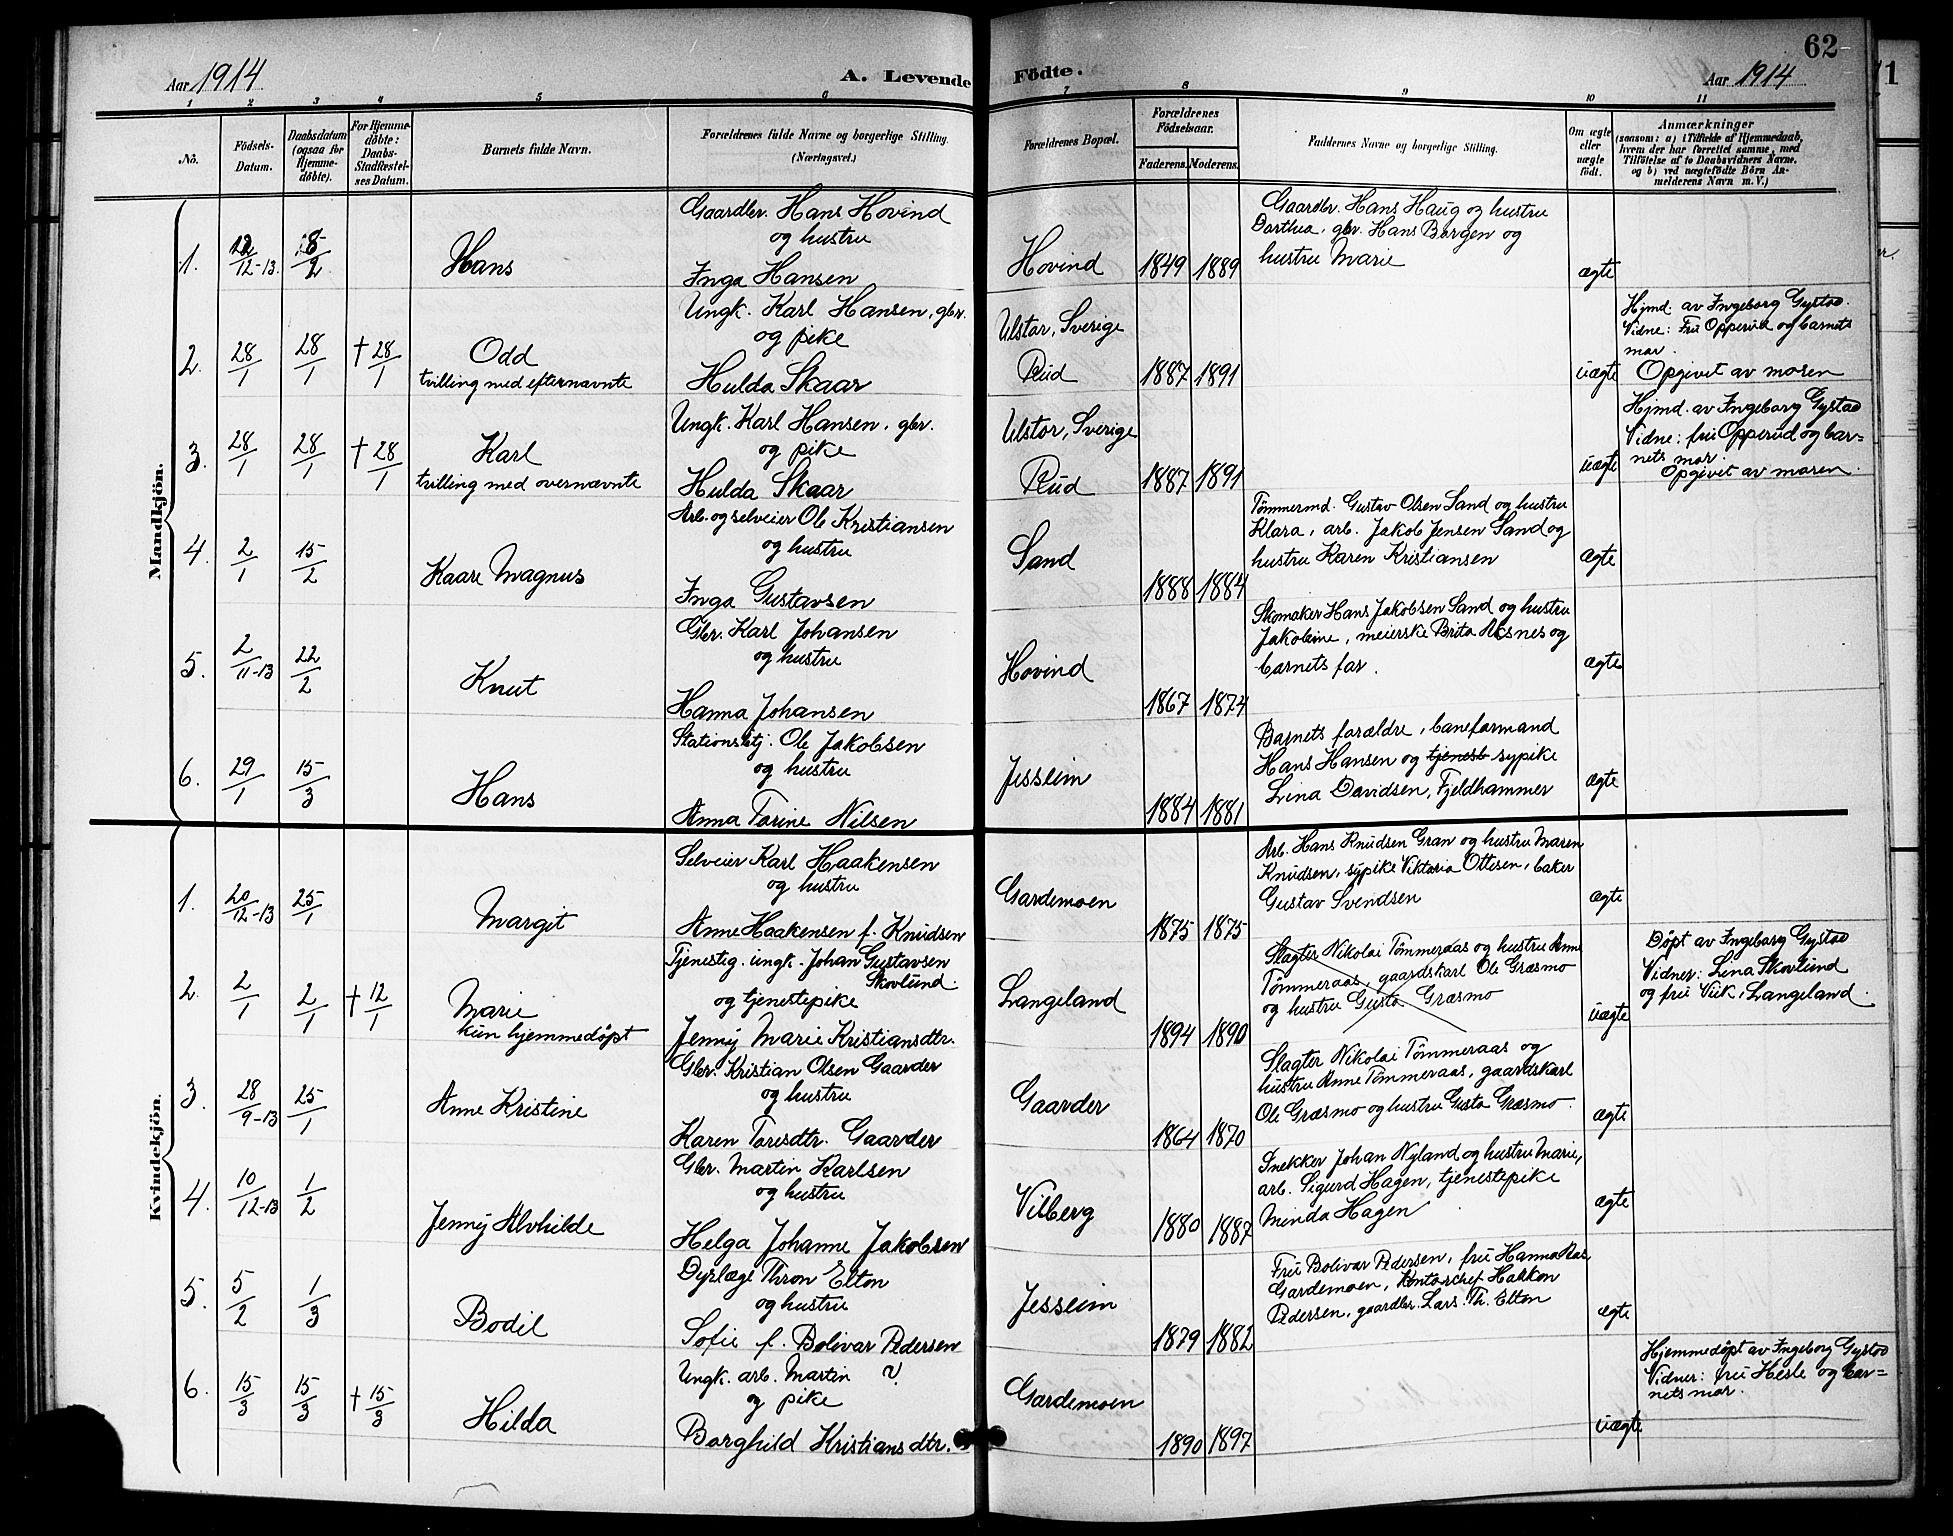 62
Aar 1914
A. Levende Födte.
Aar 1914
1 2 3 4 5 6 7 8 9 10 11
No.
Födsels-Datum.
Daabsdatum (ogsaa for Hjemme-döbte).
For Hjemme-döbte: Daabs-Stadfæstel-ses Datum.
Barnets fulde Navn.
Forældrenes fulde Navne og borgerlige Stilling.
(Næringsvei.)
Forældrenes Bopæl.
Forældrenes Födselsaar.
Faderens. Moderens.
Faddernes Navne og borgerlige Stilling.
Om ægte eller uægte födt.
Anmærkninger
(saasom: a) i Tilfælde af Hjemmedaab,
hvem der har forrettet samme, med
Tilföielse af to Daabsvidners Navne,
og b) ved uægtefödte Börn An-
melderens Navn m. V.)
Mandkjön.
1. 12/12-13. 8/2 Hans
Gaardbr. Hans Hovind
og hustru
Inga Hansen
Hovind 1849 1889
Gaardbr. Hans Haug og hustru
Dorthea, gbr. Hans Borgen og
hustru Marie
ægte
2. 28/1 28/1 † 28/1 Odd
tvilling med efternævnte
Ungk. Karl Hansen, gbr.
og pike
Hulda Skaar
Ulstor, Sverige
Rud 1887 1891
uægte
Hjmd. av Ingeborg Gystad.
Vidne: Fru Opperud og barnets
mor.
Opgivet av moren
3. 28/1 28/1 † 28/1 Karl
tvilling med overnævnte
Ungk. Karl Hansen, gbr.
og pike
Hulda Skaar
Ulstor, Sverige
Rud 1887 1891
uægte
Hjmd. av Ingeborg Gystad
Vidne: fru Opperud og bar=
nets mor.
Opgivet av moren.
4. 2/1 15/2 Kaare Magnus
Arb. og selveier Ole Kristiansen
og hustru
Inga Gustavsen
Sand 1888 1884
Tömmermd. Gustav Olsen Sand og hustru
Klara, arb. Jakob Jensen Sand og
hustru Karen Kristiansen
ægte
5. 2/11-13 22/2 Knut
Gbr. Karl Johansen
og hustru
Hanna Johansen
Hovind 1867 1874
Skomaker Hans Jakobsen Sand og hustru
Jakobine, meierske Brita Aksnes og
barnets far.
ægte
6. 29/1 15/3 Hans
Stationsbtj. Ole Jakobsen
og hustru
Anna Torine Nilsen
Jessheim 1884 1881
Barnets forældre, baneformand
Hans Hansen og tjenest sypike
Lina Davidsen, Fjeldhammer
ægte
Kvindekjön.
1. 20/12-13 25/1 Margit
Selveier Karl Haakensen
og hustru
Anne Haakensen f. Knudsen
Gardemoen 1875 1875
Arb. Hans Knudsen Gran og hustru Maren
Knudsen, sypike Viktoria Ottesen, baker
Gustav Svendsen
ægte
2. 2/1 2/1 † 12/1 Marie
kun hjemmedøpt
Tjenestig. ungk. Johan Gustavsen
Skovlund.
og tjenestepike
Jenny Marie Kristiansdtr.
Langeland 1894 1890
Slagter Nikolai Tömmeraas og hustru Anne
Tömmeraas, gaardskarl Ole Græsmo
og hustru Gusta Græsmo
uægte
Døpt av Ingeborg Gystad
Vidner: Lina Skovlund
og fru Viik, Langeland.
3. 28/9-13 25/1 Anne Kristine
Gbr. Kristian Olsen Gaarder
og hustru
Karen Toresdtr. Gaarder
Gaarder 1864 1870
Slagter Nikolai Tömmeraas og
hustru Anne Tömmeraas, gaardskarl
Ole Græsmo og hustru Gusta Græsmo.
ægte
4. 10/12-13 1/2 Jenny Alvhilde
Gbr. Martin Karlsen
og hustru
Helga Johanne Jakobsen
Vilberg 1880 1887
Snekker Johan Nyland og hustru Marie,
arb. Sigurd Hagen, tjenestepike
Minda Hagen
ægte
5. 5/2 1/3 Bodil
Dyrlæge Thron Elton
og hustru
Sofie f. Bolivar Pedersen
Jessheim 1879 1882
Fru Bolivar Pedersen, fru Hanna
Gardemoen, kontorchef Haakon
Pedersen, gaardbr. Lars Th. Elton
ægte
6. 15/3 15/3 † 15/3 Hilda
Ungk. arb. Martin ?
og pike
Borghild Kristiansdtr.
Gardemoen 1890 1897
uægte
Hjemmedøpt av Ingeborg Gystad
Vidner: fru Hesle og bar=
nets mor.